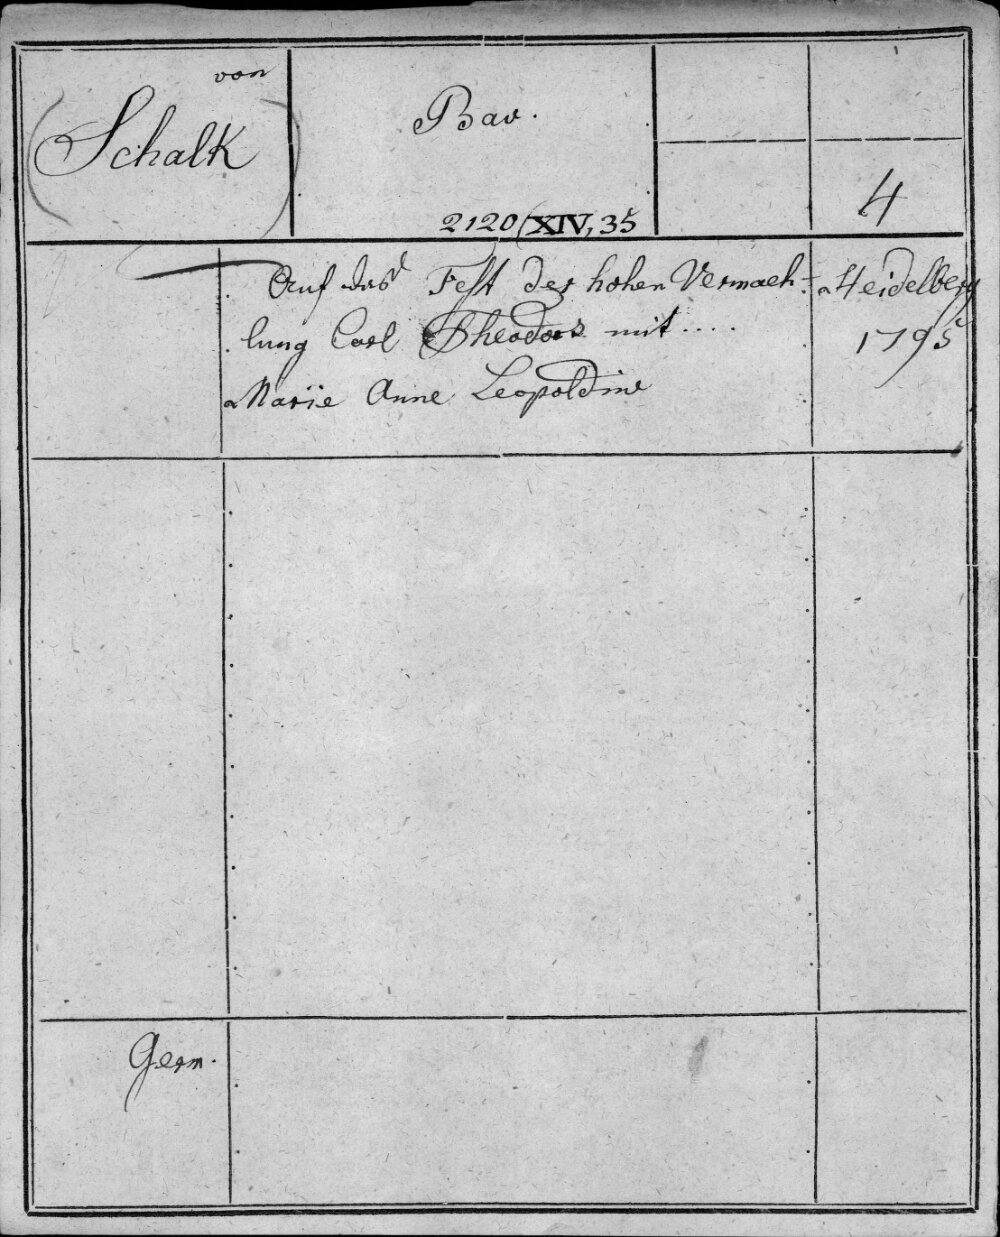 von
(Schalk)
Bav.
2120(XIV,35
4
Auf das Fest der hohen Vermaeh-
lung Carl Theodors mit ....
Marie Anne Leopoldine
Heidelberg
1795
Germ.